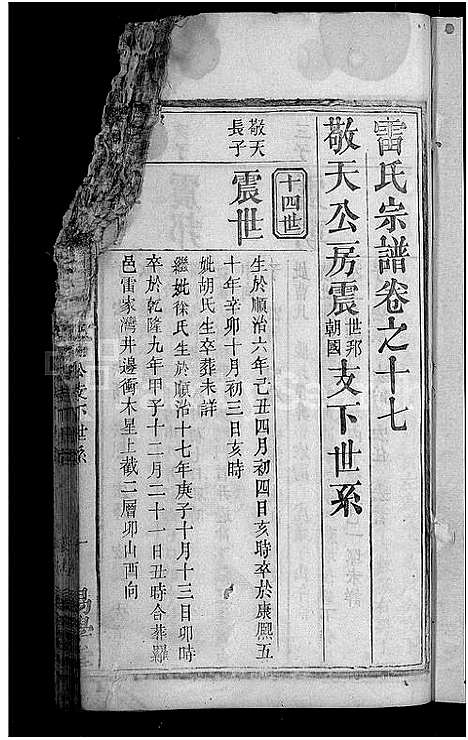 雷氏宗譜卷之十七
敬天公房震世邦朝國支下世系
十四世
敬天
長子
震世
生於順治六年己丑四月初四日亥時卒於康熙五
十年辛卯十月初三日亥時
妣胡氏生卒葬未詳
繼妣徐氏生於順治十七年庚子十月十三日卯時
卒於乾隆九年甲子十二月二十一日丑時合葬羅
邑雷家灣井邊衝木星上截二層卯山酉向
支下世系
一